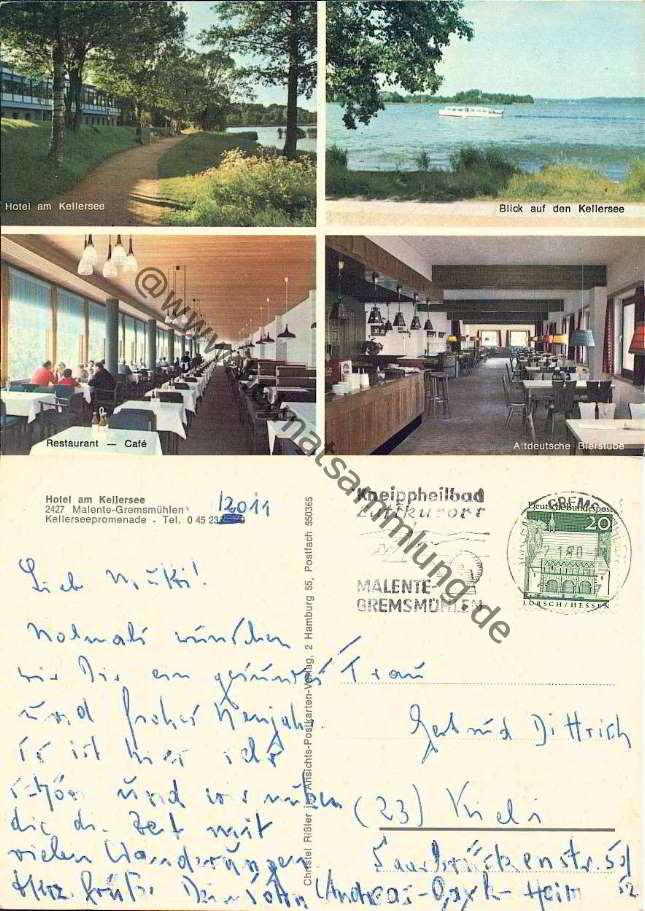 Hotel am Kellersee
Blick auf den Kellersee
Restaurant — Café
Altdeutsche Bierstube
Hotel am Kellersee
2427 Malente-Gremsmühlen
Kellerseepromenade - Tel. 0 45 23
/2011
Kneippheilbad
Luftkurort
MALENTE-
GREMSMÜHLEN
GREMS
Deutsche Bundespost
20
LORSCH/HESSEN
Christel Rißler jr., Ansichts-Postkarten-Verlag, 2 Hamburg 55, Postfach 550365
Lieb Mutti!
Nochmals wünschen
wir Dir ein gesundes
und frohes Neujahr.
Es ist hier sehr
schön und wir nutzen
die Zeit mit
vielen Wanderungen
Herz. Grüße Dein Sohn
Frau
Gertrud Dittrich
(23) Kiel 1
Saarbrückenstr. 52
Heim
@www.heimatsammlung.de